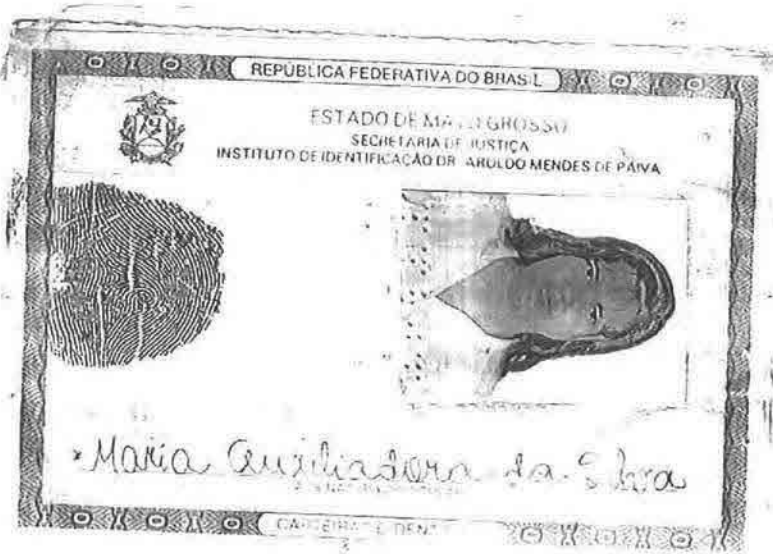 REPÚBLICA FEDERATIVA DO BRASIL
ESTADO DE MATO GROSSO
SECRETARIA DE JUSTIÇA
INSTITUTO DE IDENTIFICAÇÃO DR. AROLDO MENDES DE PAIVA
Maria Auxiliadora da Silva
CARTEIRA DE IDENT